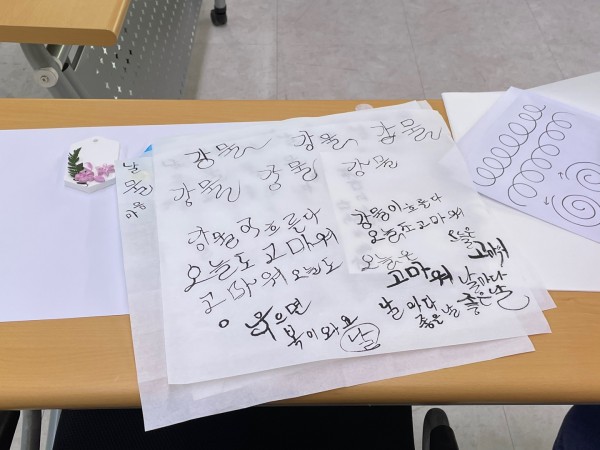 강물 강물 강물
강물 강물 강물
강물
강물이 흐른다
오늘도 고마워
고마워 오늘도
강물이 흐른다
오늘도 고마워
오늘은
오늘은
고마워
고마워
웃으면
복이 와요
날
날마다
좋은 날
날마다
좋은 날
날